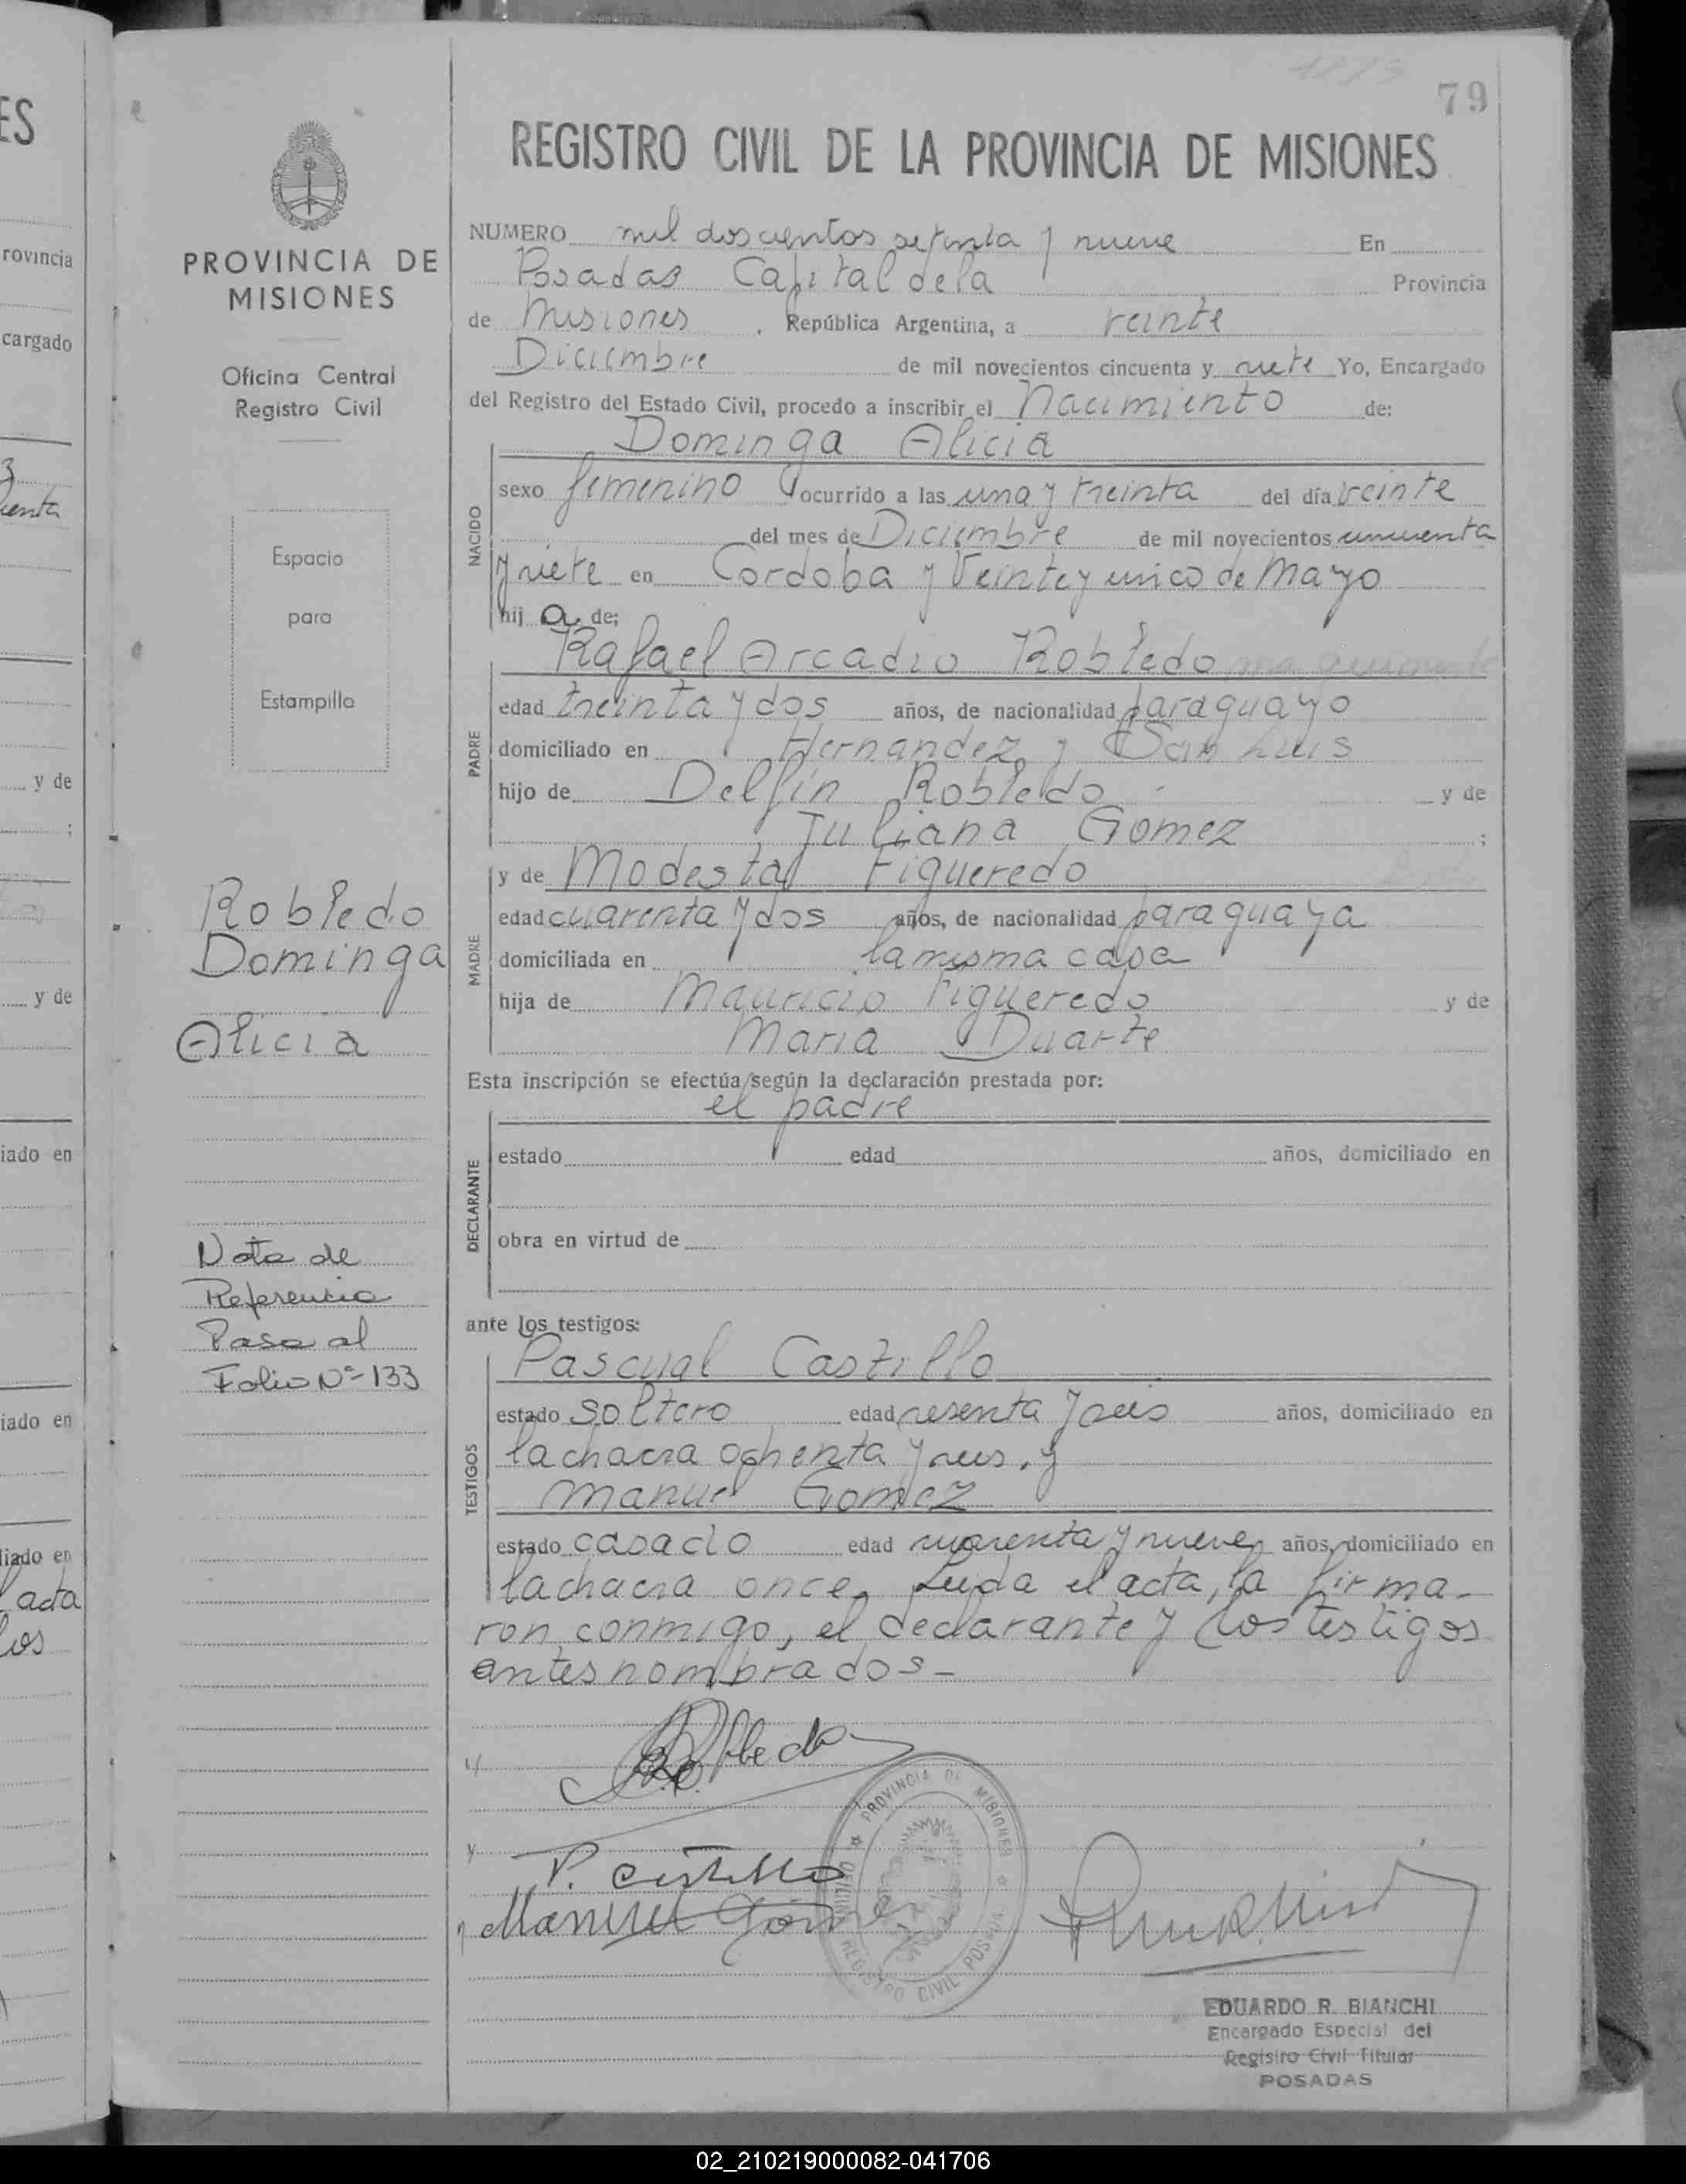 79
REGISTRO CIVIL DE LA PROVINCIA DE MISIONES
PROVINCIA DE
MISIONES
Oficina Central
Registro Civil
Espacio
para
Estampilla
Robledo
Dominga
Alicia
Nota de
Referencia
Pasa al
Folio Nº 133
NUMERO mil doscientos setenta y nueve En
Posadas Capital de la Provincia
de Misiones, República Argentina, a veinte
Diciembre de mil novecientos cincuenta y siete Yo, Encargado
del Registro del Estado Civil, procedo a inscribir el Nacimiento de:
Dominga Alicia
NACIDO
sexo femenino ocurrido a las una y treinta del día veinte
del mes de Diciembre de mil novecientos cincuenta
y siete en Cordoba y Veinte y cinco de Mayo
hij a de;
Rafael Arcadio Robledo
PADRE
edad treinta y dos años, de nacionalidad paraguayo
domiciliado en Hernandez y San Luis
hijo de Delfin Robledo y de
Juliana Gomez ;
y de Modesta Figueredo
MADRE
edad cuarenta y dos años, de nacionalidad paraguaya
domiciliada en la misma casa
hija de Mauricio Figueredo y de
Maria Duarte
Esta inscripción se efectúa según la declaración prestada por:
el padre
DECLARANTE
estado edad años, domiciliado en
obra en virtud de
ante los testigos:
Pascual Castillo
TESTIGOS
estado soltero edad sesenta y seis años, domiciliado en
la chacra ochenta y seis, y
Manuel Gomez
estado casado edad cuarenta y nueve años, domiciliado en
la chacra once. Leida el acta, la firma-
ron conmigo, el declarante y los testigos
antes nombrados-
Robledo
P. Castillo
Manuel Gomez
PROVINCIA DE MISIONES
OFICINA REGISTRO CIVIL POSADAS
EDUARDO R. BIANCHI
Encargado Especial del
Registro Civil Titular
POSADAS
02_210219000082-041706